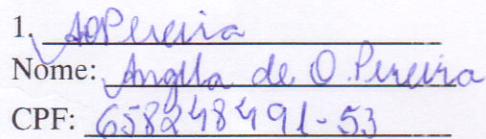 1. AOPereira
Nome: Angila de O. Pereira
CPF: 658248491-53